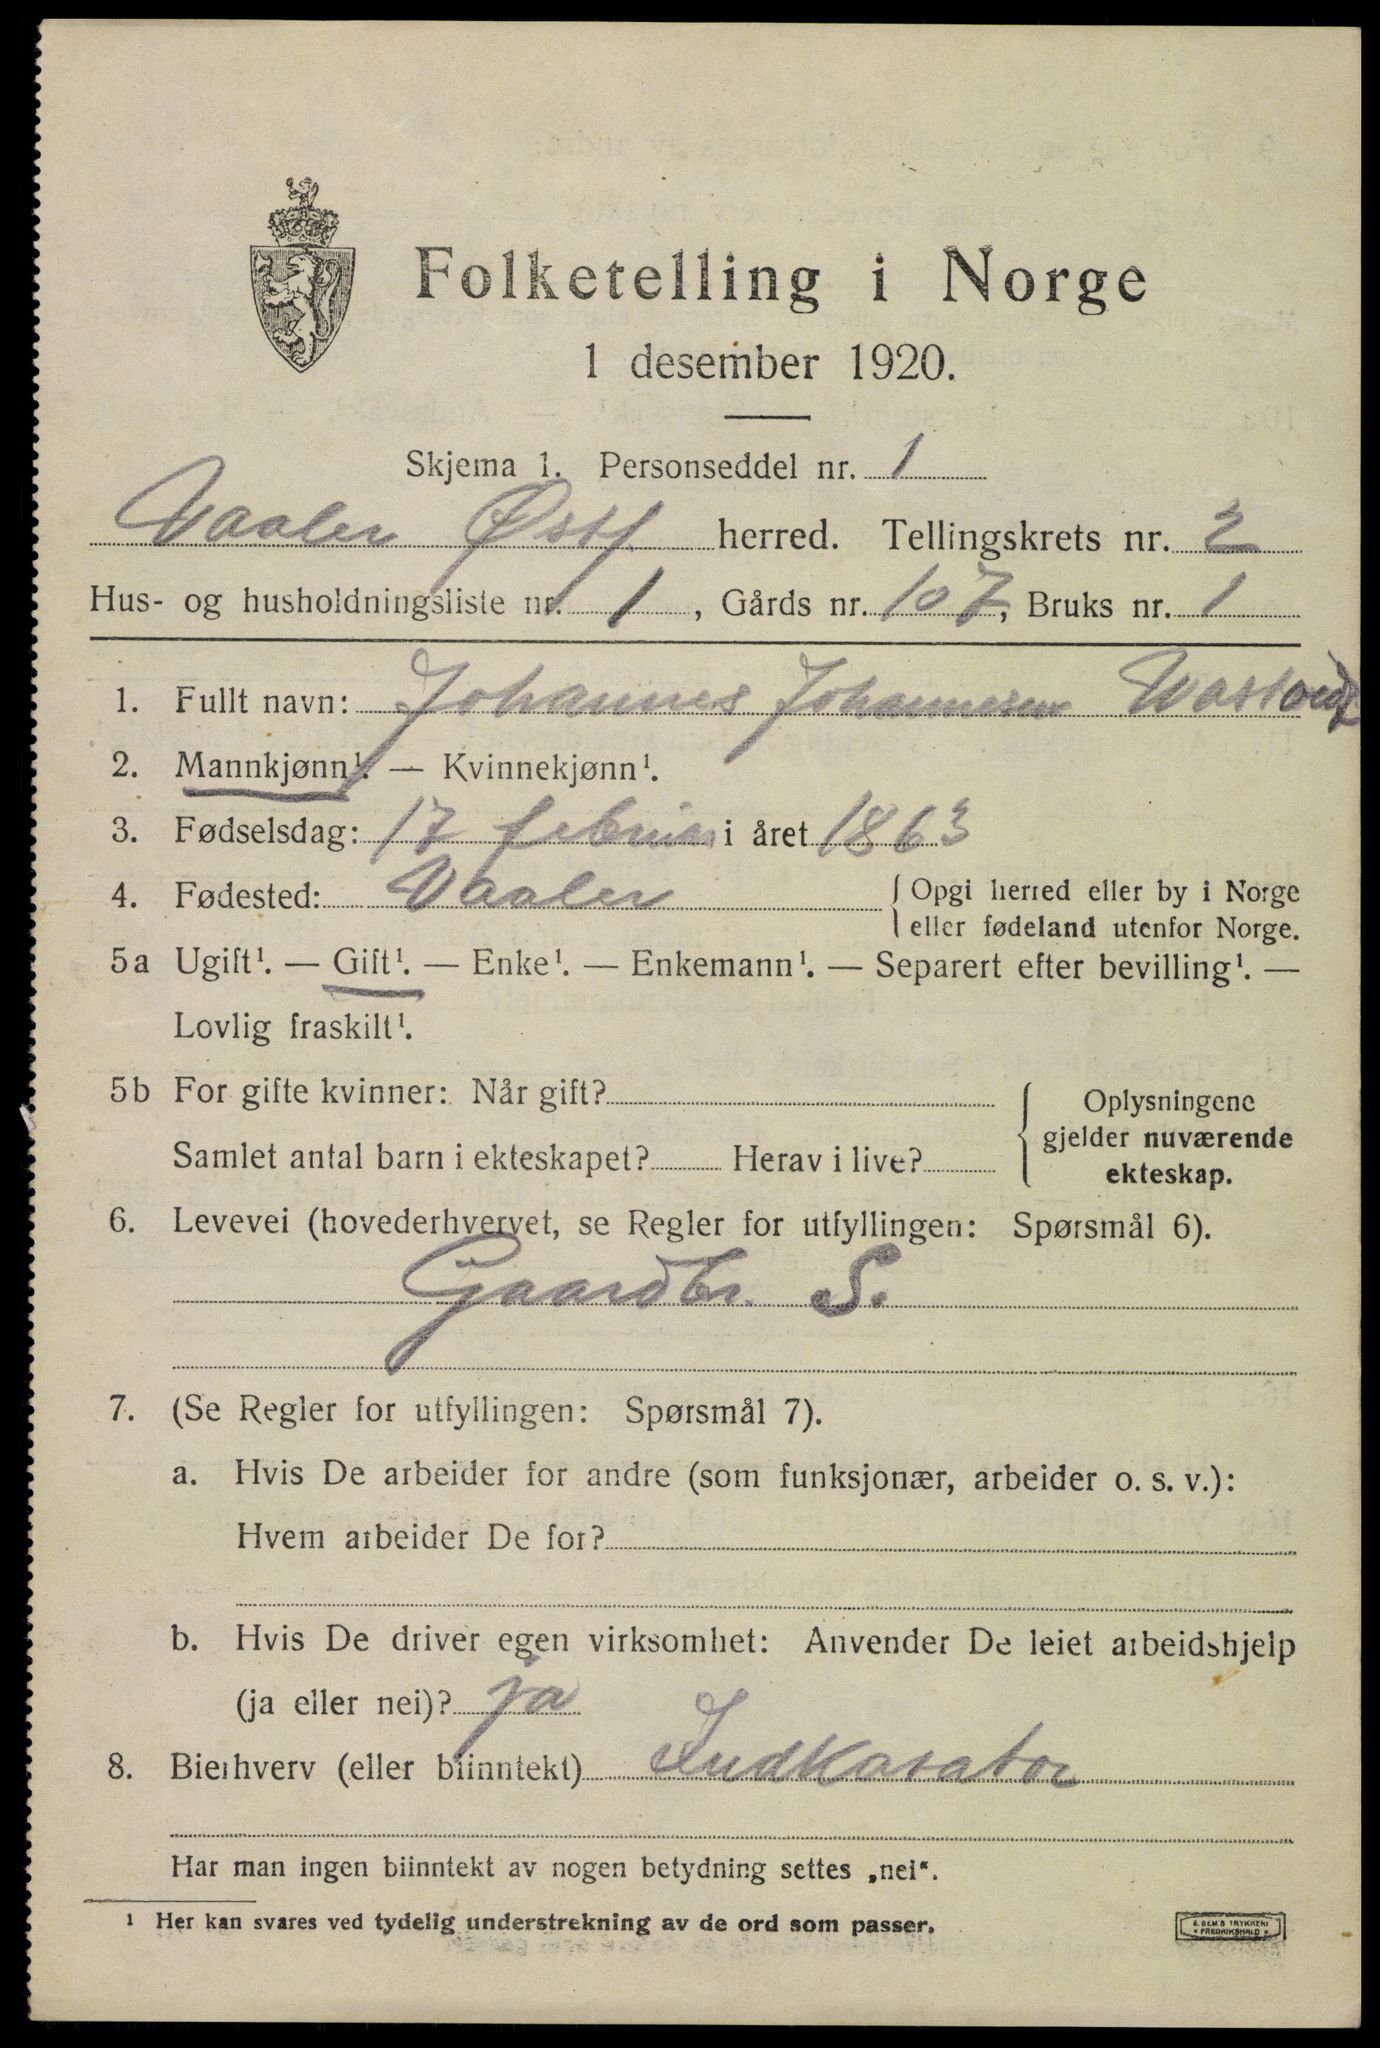 Folketelling i Norge
1 desember 1920.
Skjema 1. Personseddel nr. 1
Vaaler Østf. herred. Tellingskrets nr. 2
Hus- og husholdningsliste nr. 1, Gårds nr. 107, Bruks nr. 1
1. Fullt navn: Johannes Johannesen
2. Mannkjønn¹. — Kvinnekjønn¹.
3. Fødselsdag: 17 februar i året 1863
4. Fødested: Vaaler { Opgi herred eller by i Norge
eller fødeland utenfor Norge.
5a Ugift¹. — Gift¹. — Enke¹. — Enkemann¹. — Separert efter bevilling¹. —
Lovlig fraskilt¹.
5b For gifte kvinner: Når gift?
Samlet antal barn i ekteskapet? Herav i live?
{ Oplysningene
gjelder nuværende
ekteskap.
6. Levevei (hovederhvervet, se Regler for utfyllingen: Spørsmål 6).
Gaardbr. S.
7. (Se Regler for utfyllingen: Spørsmål 7).
a. Hvis De arbeider for andre (som funksjonær, arbeider o. s. v.):
Hvem arbeider De for?
b. Hvis De driver egen virksomhet: Anvender De leiet arbeidshjelp
(ja eller nei)? ja
8. Bierhverv (eller biinntekt) Indkasator
Har man ingen biinntekt av nogen betydning settes „nei“.
¹ Her kan svares ved tydelig understrekning av de ord som passer.
E. SEM'S TRYKKERI
* FREDRIKSHALD *